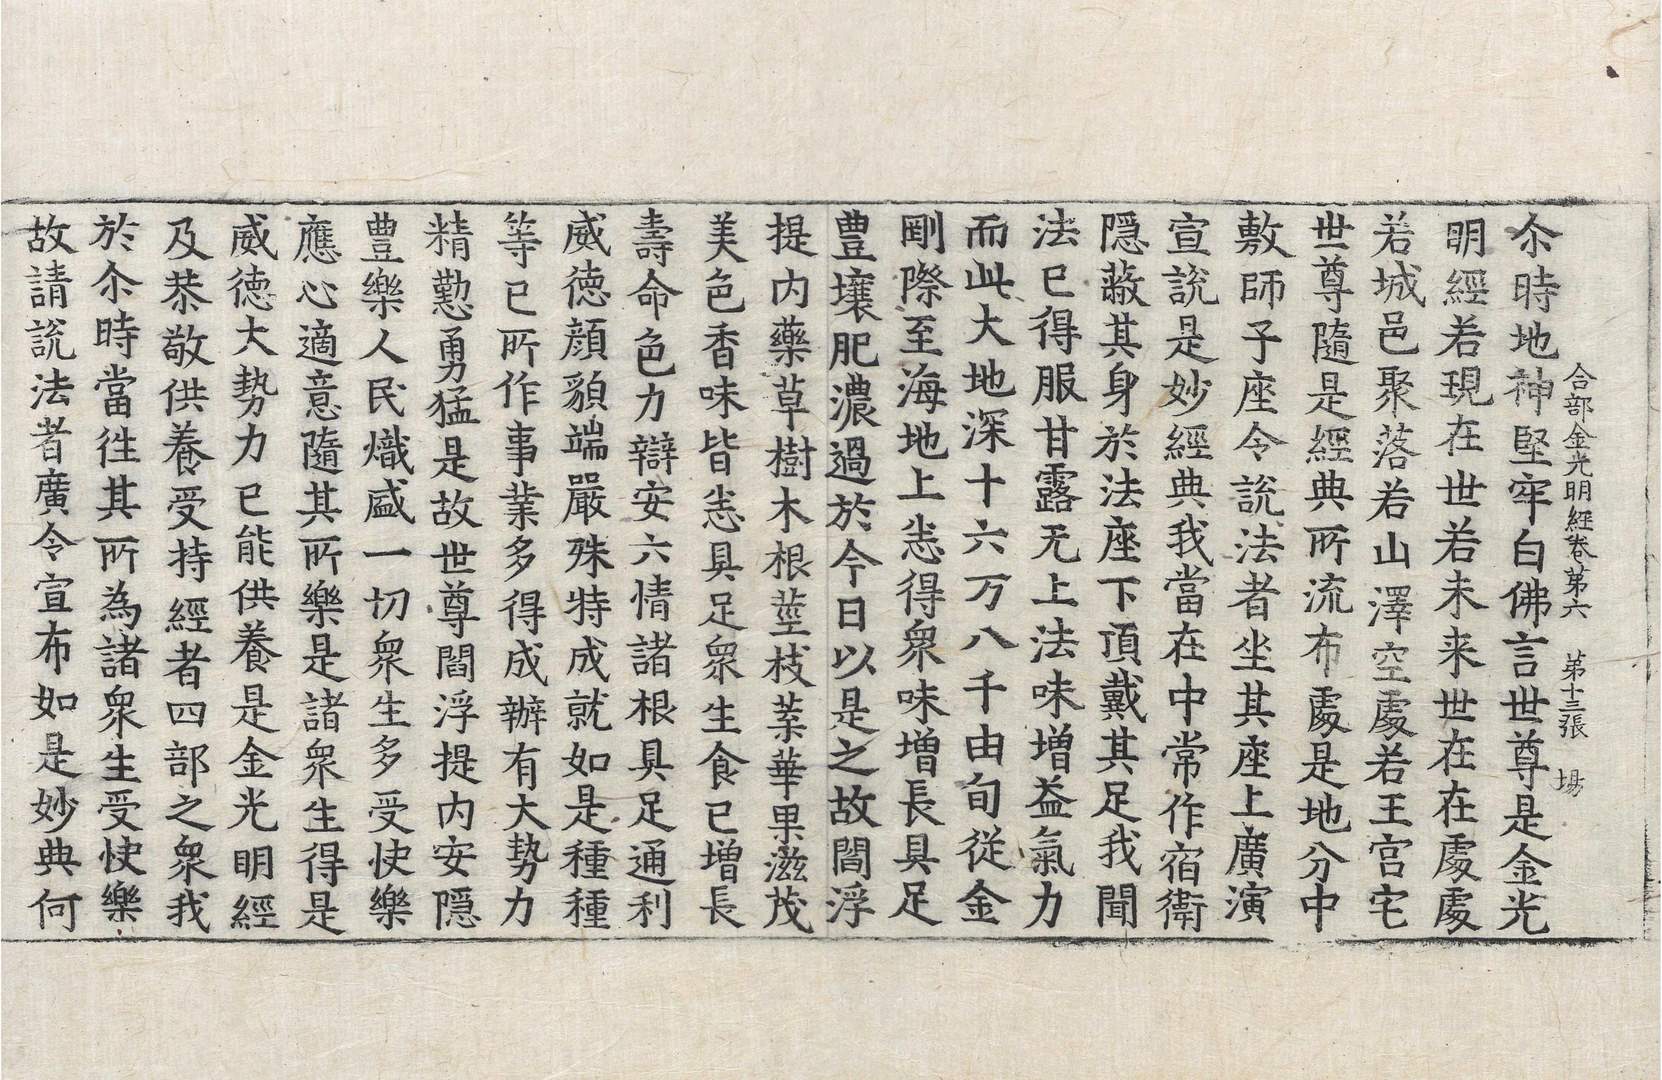 合部金光明經卷第六　第十三張　場
尒時地神堅牢白佛言世尊是金光
明經若現在世若未来世在在處處
若城邑聚落若山澤空處若王宮宅
世尊隨是經典所流布處是地分中
敷師子座令說法者坐其座上廣演
宣說是妙經典我當在中常作宿衛
隱蔽其身於法座下頂戴其足我聞
法已得服甘露无上法味增益氣力
而此大地深十六万八千由旬從金
剛際至海地上悉得衆味增長具足
豊壤肥濃過於今日以是之故閻浮
提內藥草樹木根莖枝葉華果滋茂
美色香味皆悉具足衆生食已增長
壽命色力辯安六情諸根具足通利
威德顏貌端嚴殊特成就如是種種
等已所作事業多得成辦有大勢力
精懃勇猛是故世尊閻浮提内安隱
豊樂人民熾盛一切衆生多受快樂
應心適意隨其所樂是諸衆生得是
威德大勢力已能供養是金光明經
及恭敬供養受持經者四部之衆我
於尒時當往其所為諸衆生受快樂
故請說法者廣令宣布如是妙典何